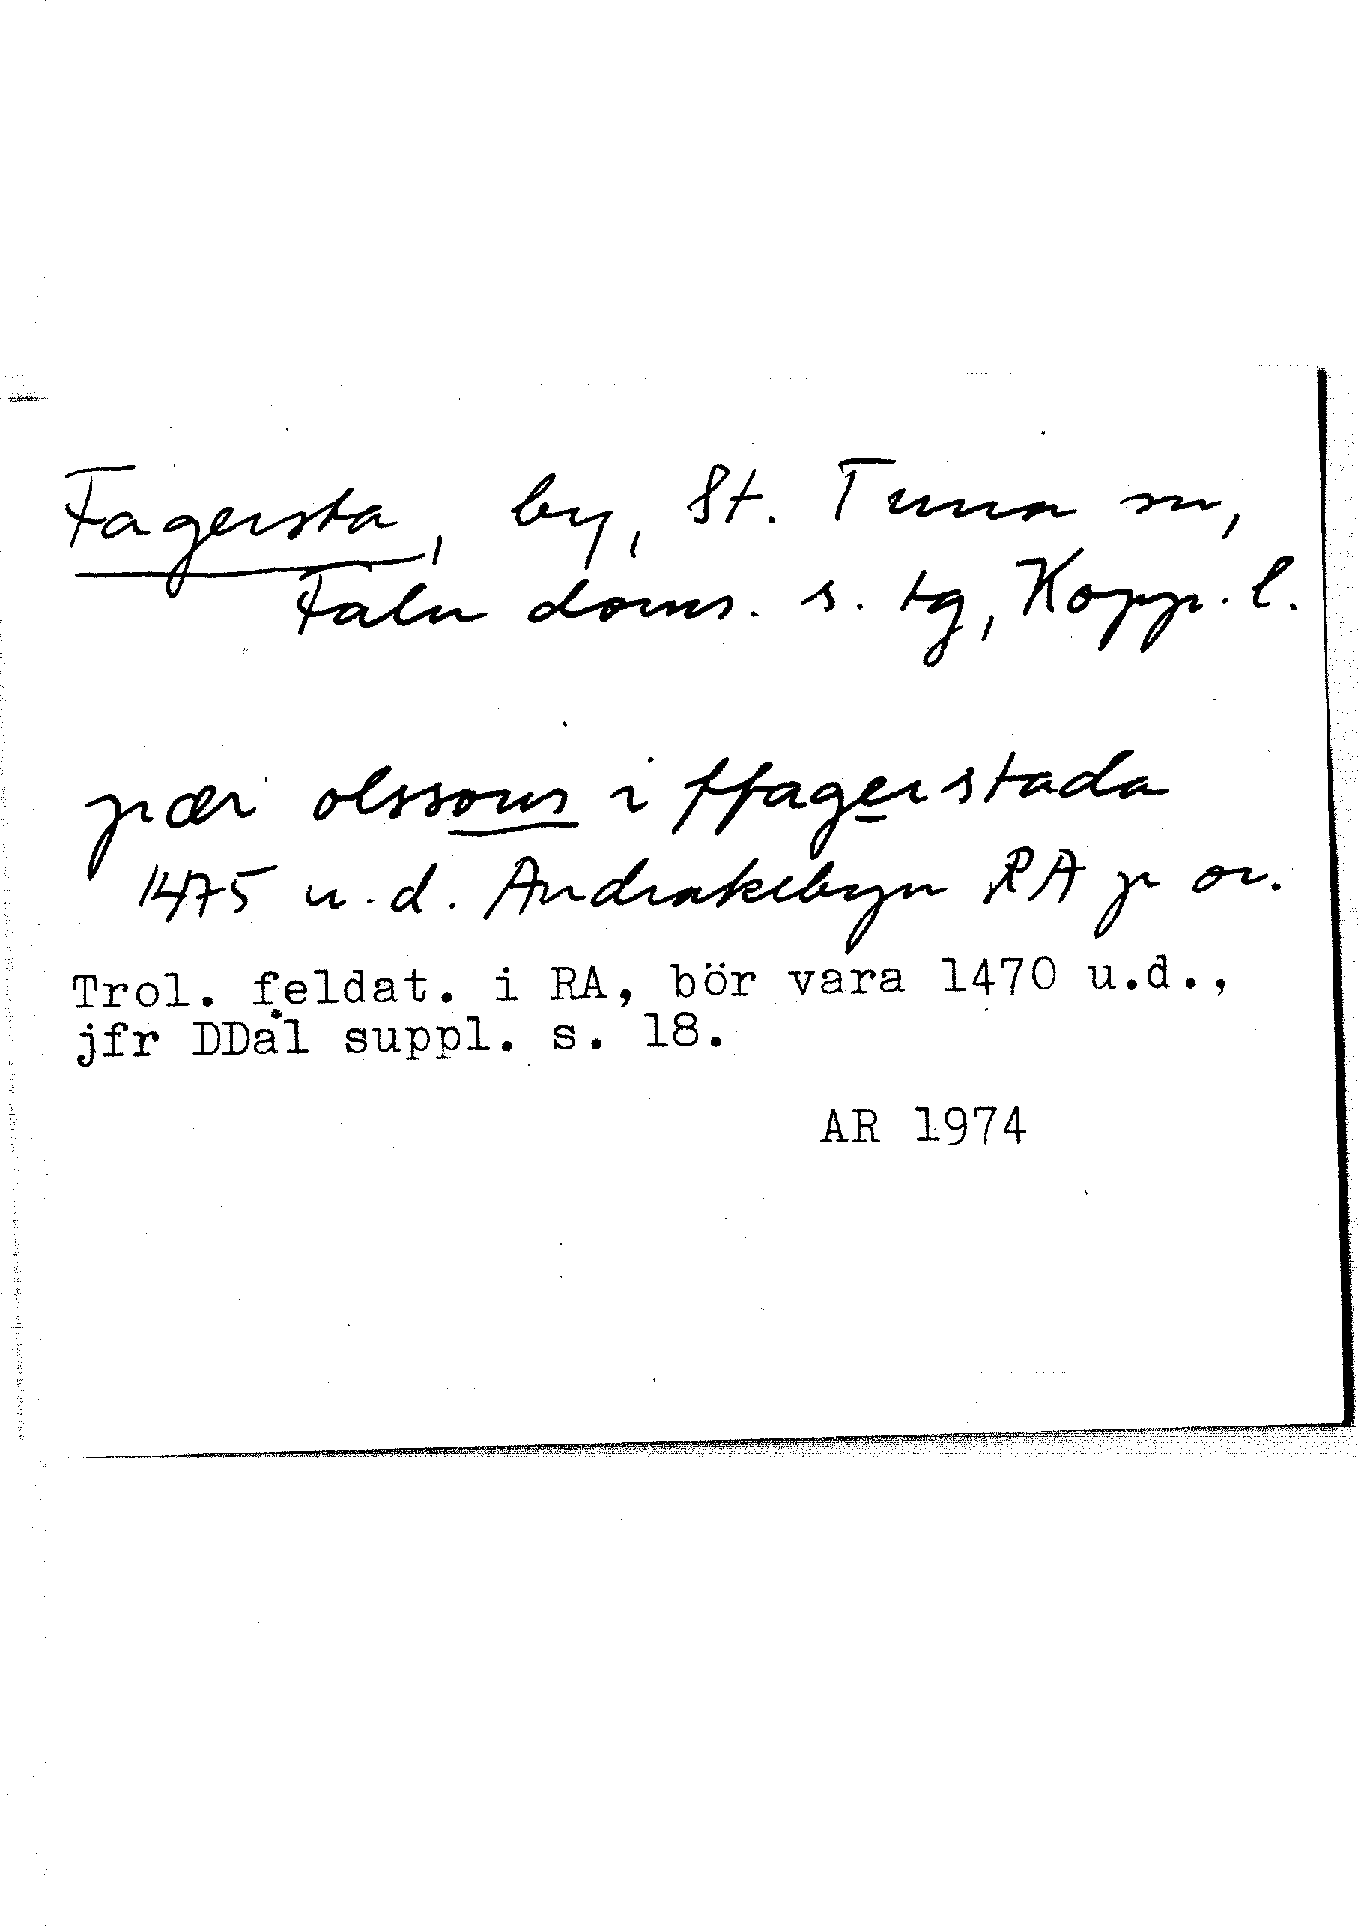 Fagersta, by, St. Tuna sn,
Falu doms. s. tg, Kopp. l.
pær olssons i ffagerstada
1475 u.d. Andrakebyn RA p or.
Trol. feldat. i RA, bör vara 1470 u.d.,
jfr DDal suppl. s. 18.
AR 1974